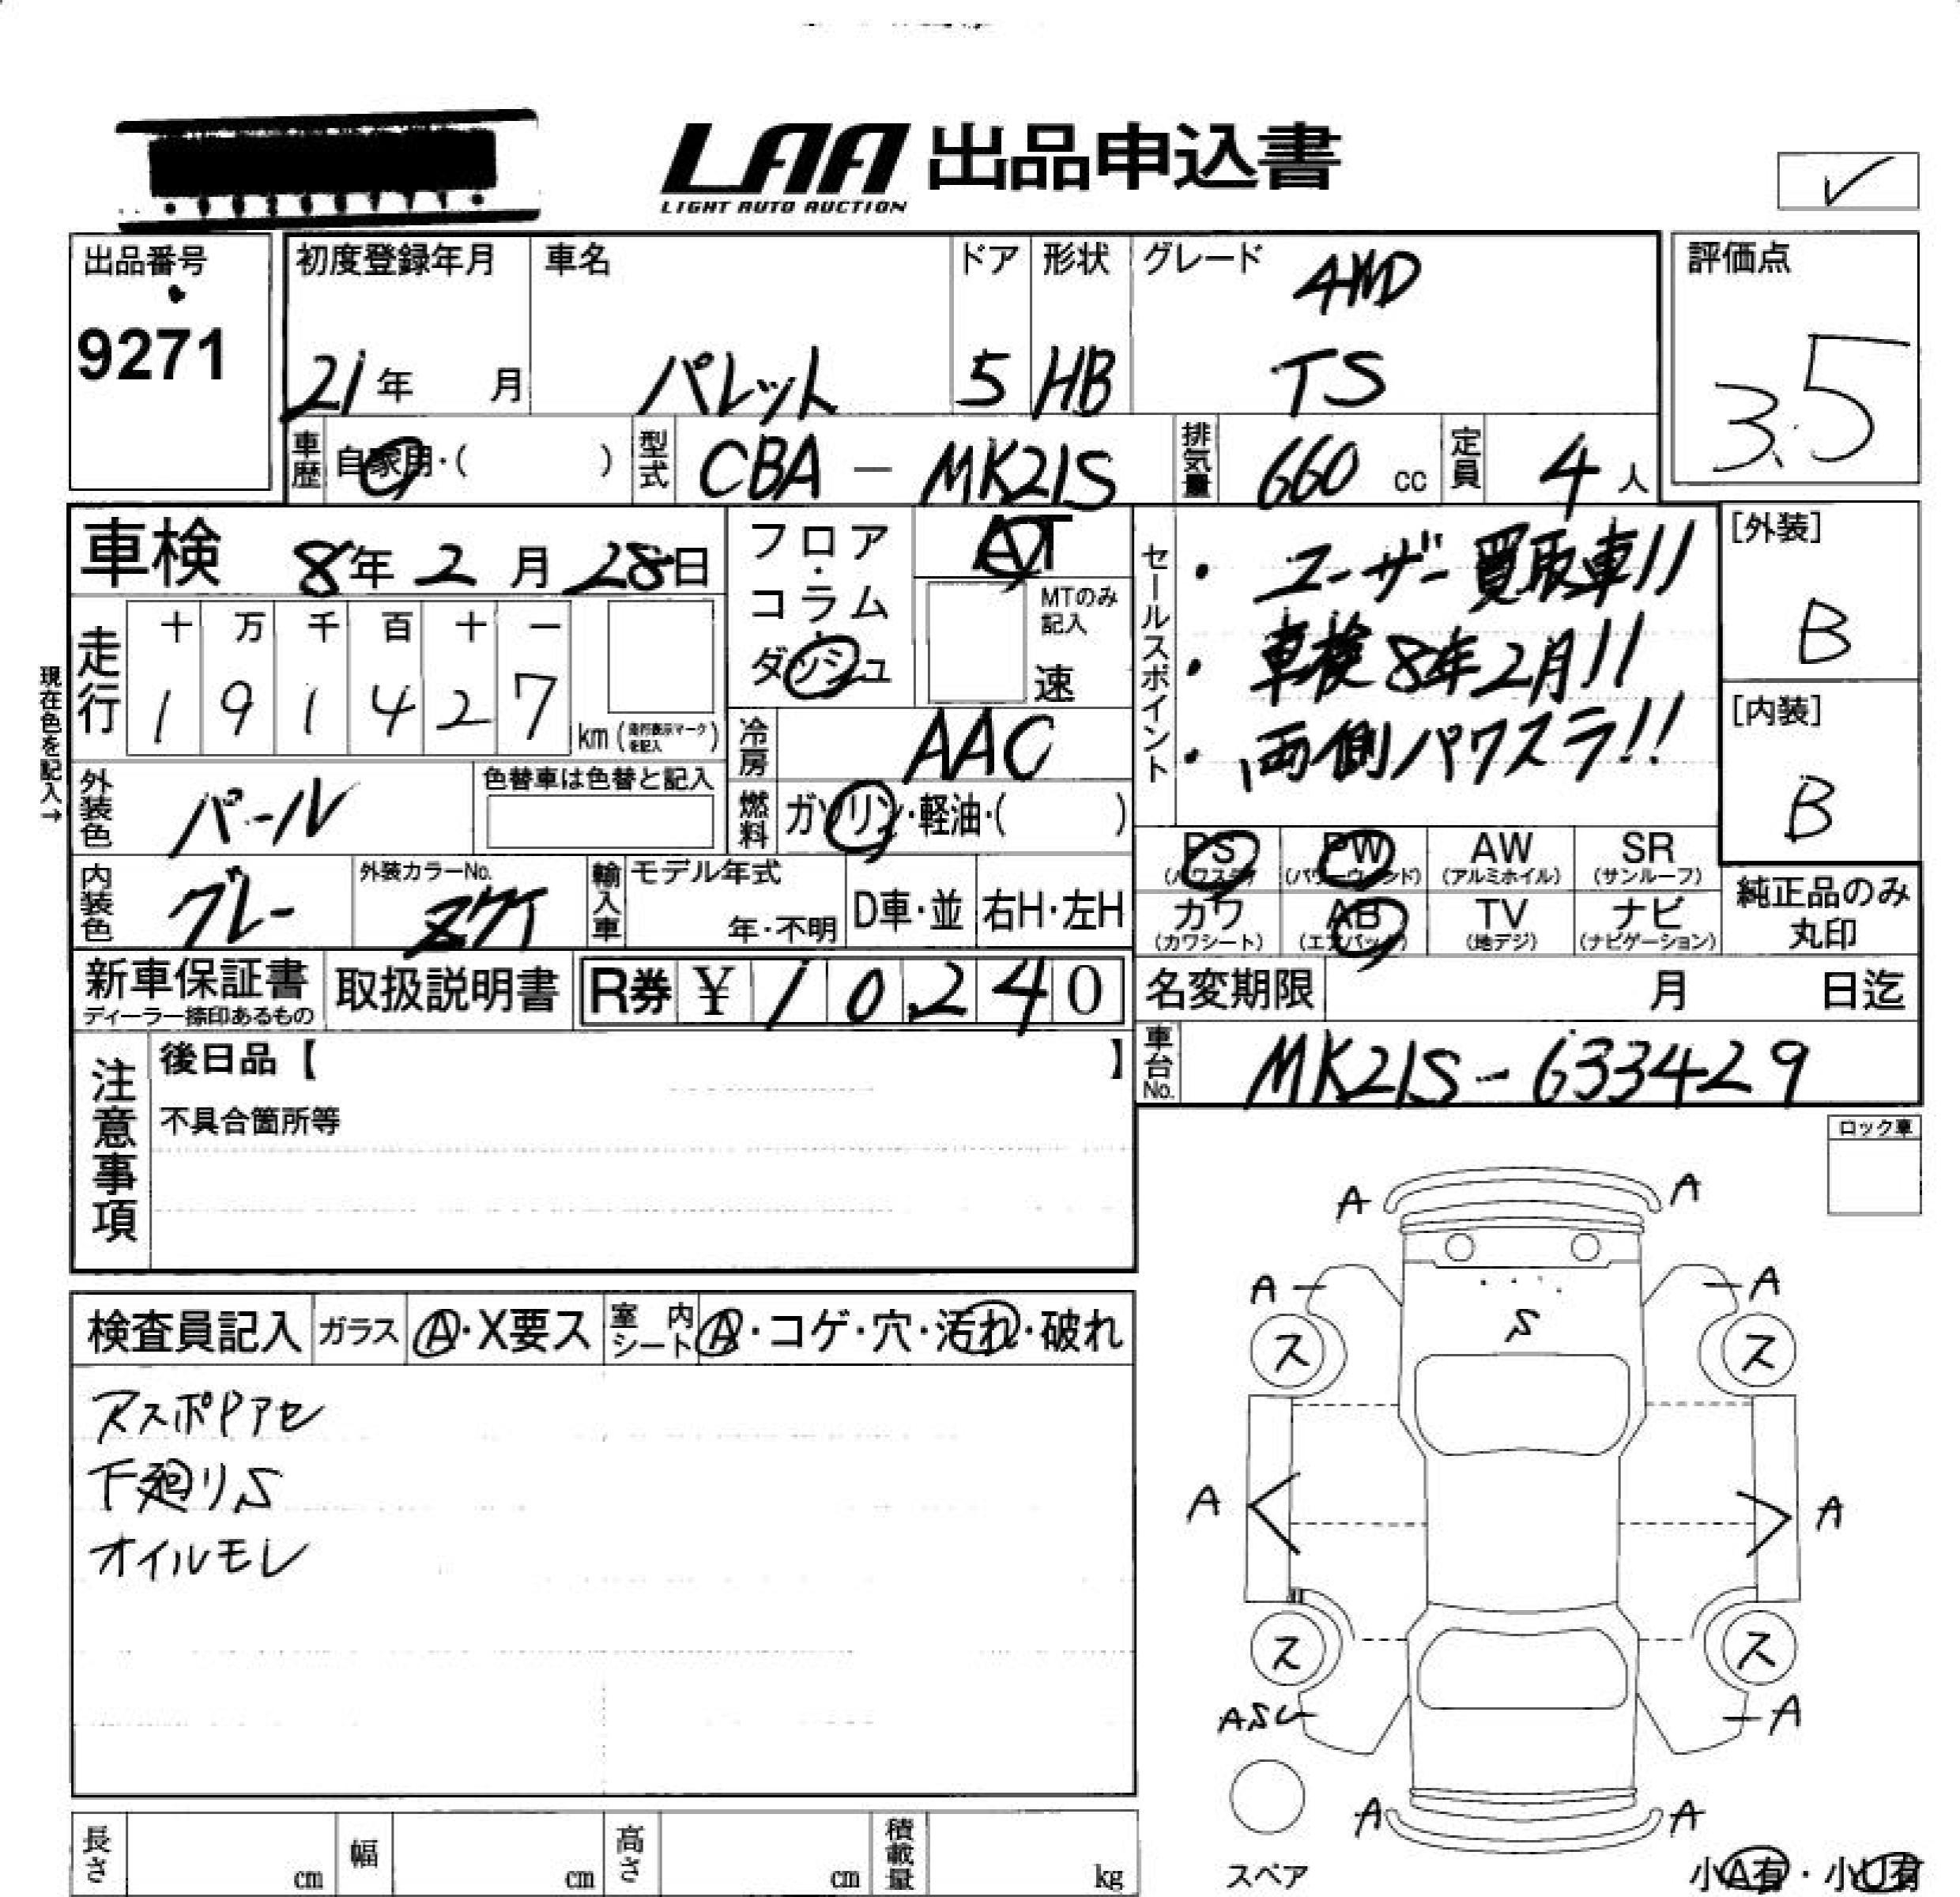 LAA 出品申込書
LIGHT AUTO AUCTION
✓
出品番号
9271
初度登録年月
21年 月
車名
パレット
ドア
5
形状
HB
グレード
4WD
TS
評価点
3.5
車歴 自家用・( )
型式 CBA - MK21S
排気量 660 cc
定員 4 人
車検 8年 2月 28日
フロア・コラム・ダッシュ
AT
MTのみ記入
速
現在色を記入→
走行
十 万 千 百 十 一
1 9 1 4 2 7 km (走行表示マークを記入)
冷房 AAC
燃料 ガソリン・軽油・( )
外装色 パール
色替車は色替と記入
内装色 グレー
外装カラーNo. Z7T
輸入車 モデル年式
年・不明
D車・並 右H・左H
セールスポイント
・ユーザー買取車!!
・車検8年2月!!
・両側パワスラ!!
[外装]
B
[内装]
B
PS (パワステ) PW (パワーウィンド) AW (アルミホイル) SR (サンルーフ)
カワ (カワシート) AB (エアバッグ) TV (地デジ) ナビ (ナビゲーション)
純正品のみ
丸印
新車保証書
ディーラー捺印あるもの
取扱説明書
R券 ¥ 10,240
名変期限 月 日迄
車台No. MK21S-633429
注意事項
後日品【 】
不具合箇所等
ロック車
検査員記入 ガラス A・X要ス 室内シート A・コゲ・穴・汚れ・破れ
下廻りS
オイルモレ
A A
A A
S
ス ス
A A
ス ス
ASC A
A A
スペア
小A有・小U有
長さ cm 幅 cm 高さ cm 積載量 kg